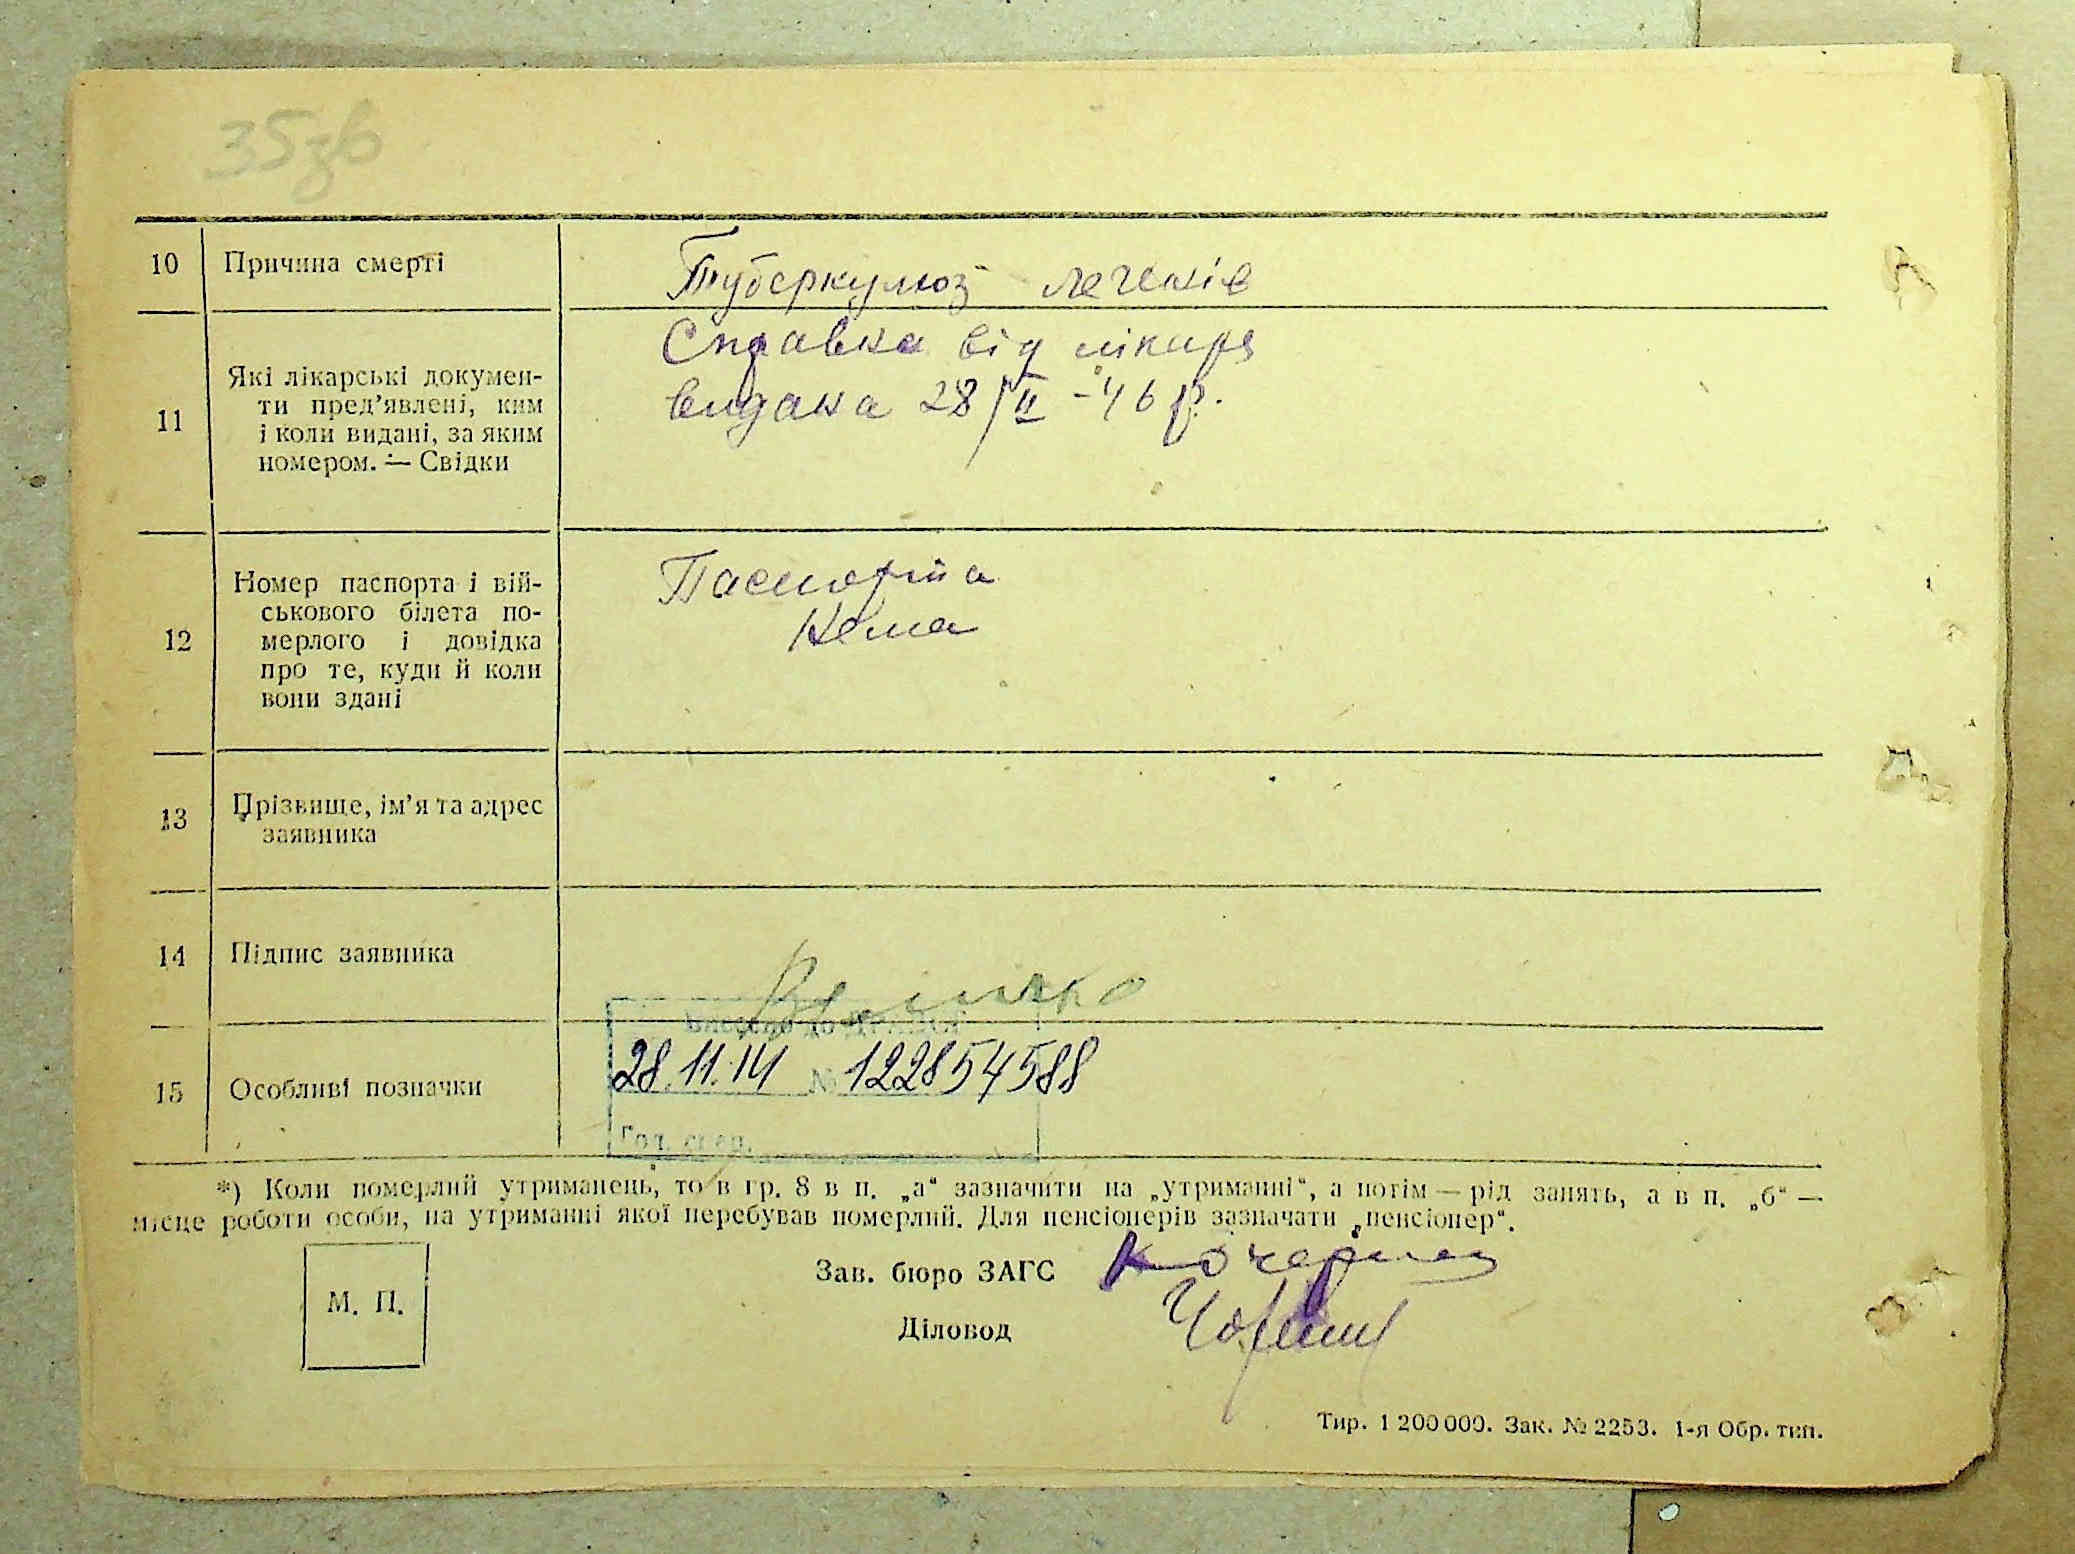 35зв
10 Причина смерті Туберкульоз легенів
11 Які лікарські докумен-
ти пред'явлені, ким
і коли видані, за яким
номером. — Свідки
Справка від лікаря
видана 28/II -46 р.
12 Номер паспорта і вій-
ськового білета по-
мерлого і довідка
про те, куди й коли
вони здані
Паспорта
нема
13 Прізвище, ім'я та адрес
заявника
14 Підпис заявника
Внесено до
15 Особливі позначки 28.11.14 № 122854588
Гол. спец.
*) Коли померлий утриманець, то в гр. 8 в п. „а“ зазначити на „утриманні“, а потім — рід занять, а в п. „б“ —
місце роботи особи, на утриманні якої перебував померлий. Для пенсіонерів зазначати „пенсіонер“.
М. П.
Зав. бюро ЗАГС
Діловод
Тир. 1 200 000. Зак. № 2253. 1-я Обр. тип.